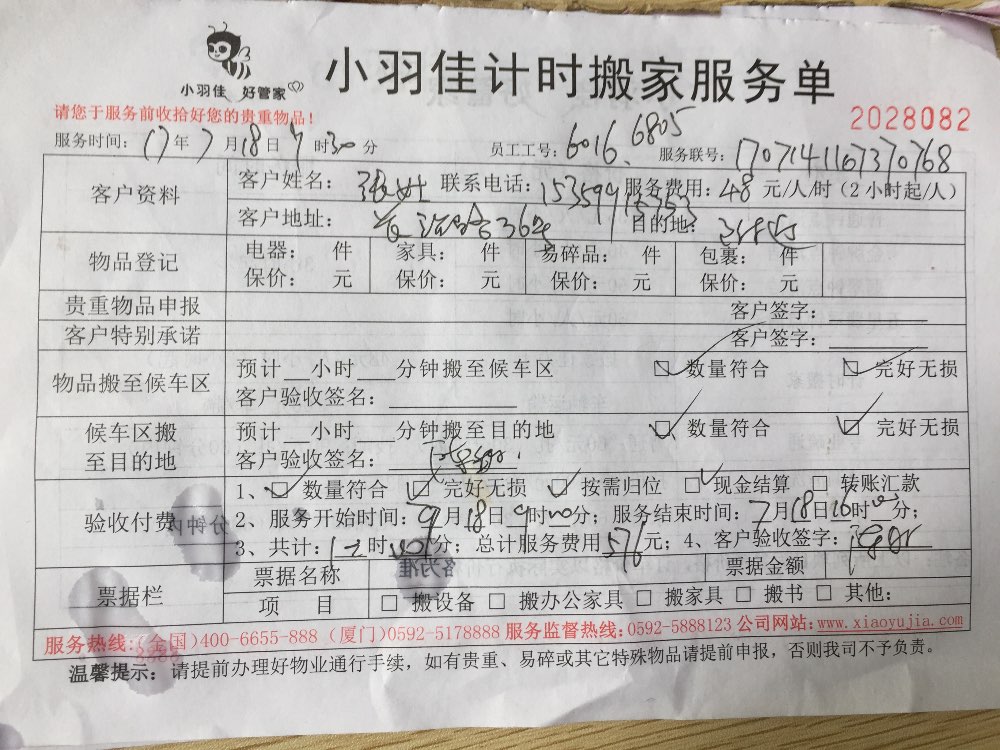 小羽佳 好管家
小羽佳计时搬家服务单
请您于服务前收拾好您的贵重物品!
2028082
服务时间: 17年7月18日 时30分 员工工号: 6016.6805 服务联号: 1707141167370768
客户资料 客户姓名: 联系电话: 服务费用: 48 元/人/时(2小时起/人)
客户地址: 目的地:
物品登记 电器: 件 家具: 件 易碎品: 件 包裹: 件
保价: 元 保价: 元 保价: 元 保价: 元
贵重物品申报 客户签字:
客户特别承诺 客户签字:
物品搬至候车区 预计 小时 分钟搬至候车区 ☑ 数量符合 ☑ 完好无损
客户验收签名:
候车区搬至目的地 预计 小时 分钟搬至目的地 ☑ 数量符合 ☑ 完好无损
客户验收签名:
验收付费 1、☑ 数量符合 ☑ 完好无损 ☑ 按需归位 ☑ 现金结算 □ 转账汇款
2、服务开始时间: 月18日9时00分; 服务结束时间: 7月18日16时00分;
3、共计: 时 分; 总计服务费用576元; 4、客户验收签字:
票据栏 票据名称 票据金额
项 目 □ 搬设备 □ 搬办公家具 □ 搬家具 □ 搬书 □ 其他:
服务热线:(全国)400-6655-888 (厦门)0592-5178888 服务监督热线:0592-5888123 公司网站: www.xiaoyujia.com
温馨提示: 请提前办理好物业通行手续, 如有贵重、易碎或其它特殊物品请提前申报, 否则我司不予负责。